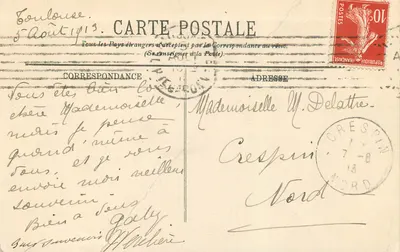 Toulouse.
5 Août 1913.
CARTE POSTALE
Tous les Pays étrangers n'acceptent pas la Correspondance au verso.
(Se renseigner à la Poste)
CORRESPONDANCE
ADRESSE
Vous êtes bien
chère Mademoiselle,
mais je pense
quand même à
vous, et je vous
envoie mon meilleur
souvenir.
Bien à vous
Mademoiselle M. Delattre
Crespin
Nord
CRESPIN
7-8
13
NORD
10
POSTES